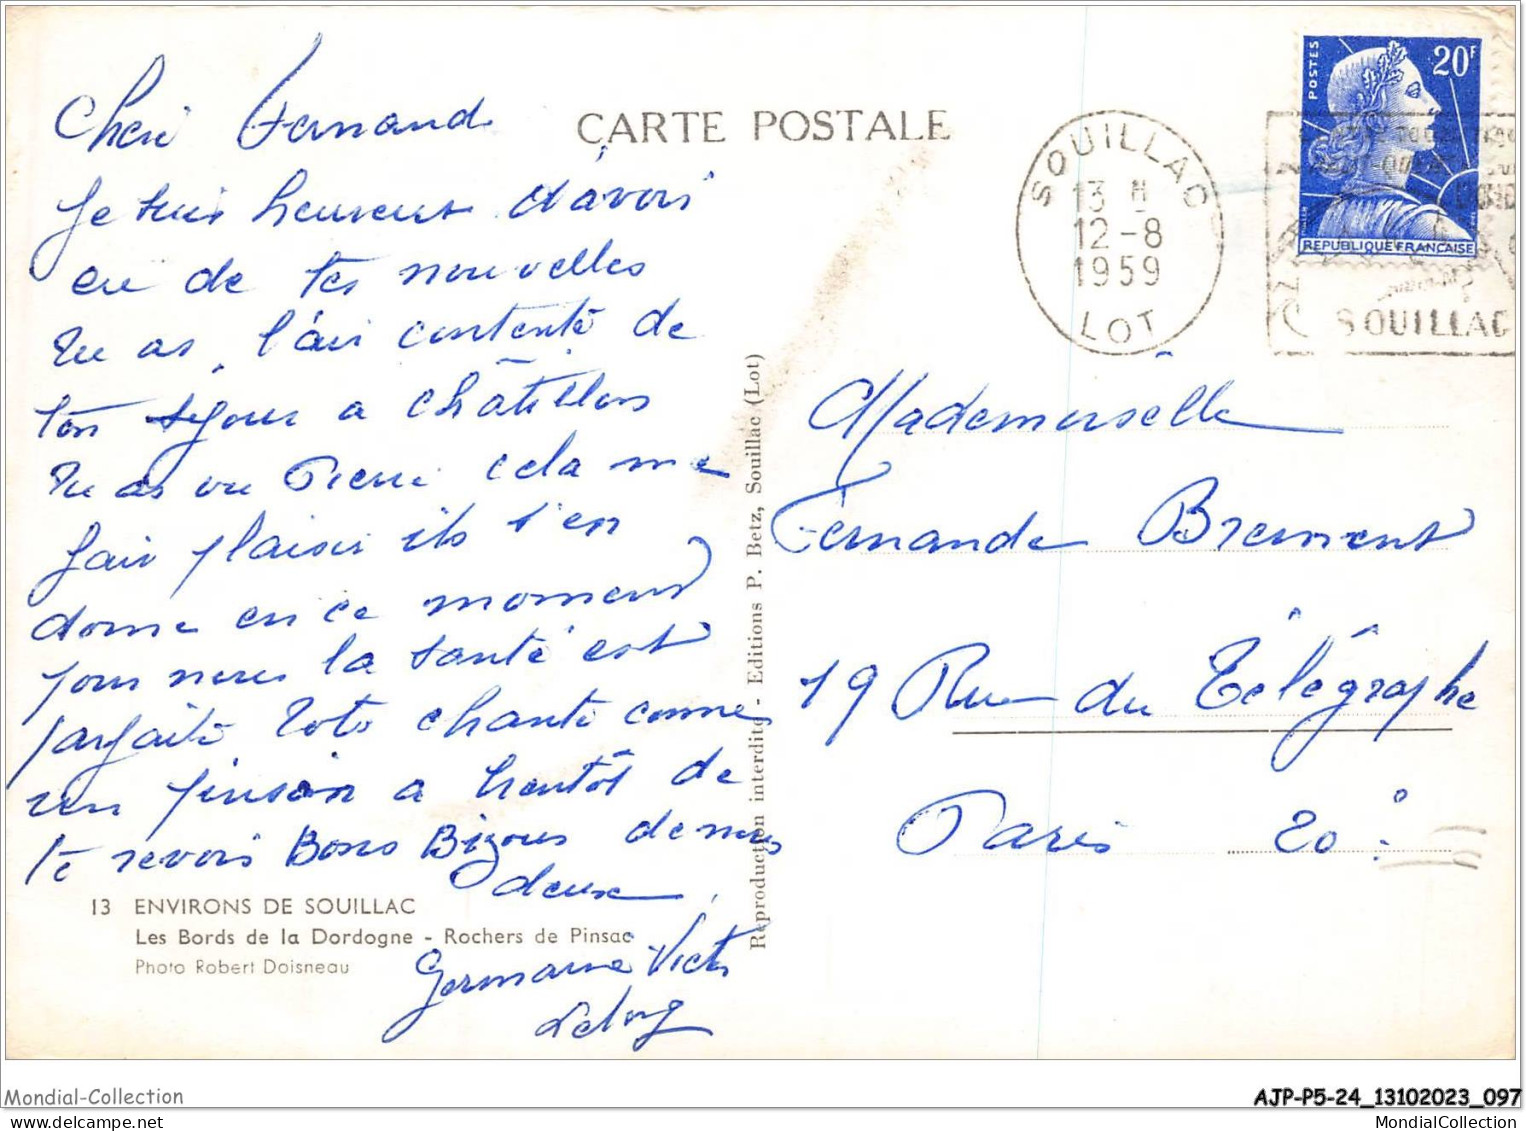 CARTE POSTALE
Cheri Fernand
Je suis heureux d'avoir
eu de tes nouvelles
Tu as l'air contente de
ton séjour a châtillon
Tu as vu Pierre cela me
fair plaisir ils s'en
donne en ce moment
pour nous la santé est
parfaite Toto chante comme
un pinson a bientôt de
te revoir Bons Bizous de nous
deux
Germaine Victor
13 ENVIRONS DE SOUILLAC
Les Bords de la Dordogne - Rochers de Pinsac
Photo Robert Doisneau
Reproduction interdite - Editions P. Betz, Souillac (Lot)
SOUILLAC
13 H
12-8
1959
LOT
POSTES
20F
REPUBLIQUE FRANÇAISE
SOUILLAC
Mademoiselle
Fernande Brement
19 Rue du Télégraphe
Paris 20e
Mondial-Collection
AJP-P5-24_13102023_097
MondialCollection